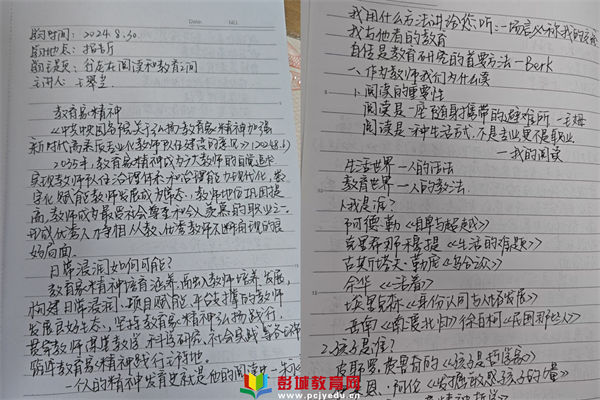 时间：2024.8.30.
地点：报告厅
主题：行走在阅读和教育之间
主讲人：
教育家精神
《中共中央国务院关于弘扬教育家精神加强
新时代高素质专业化教师队伍建设的意见》(2024.8.6)
2035年，教育家精神成为广大教师的自觉追求
实现教师队伍治理体系和治理能力现代化，数
字化赋能教师发展成为常态，教师地位巩固提
高，教师成为最受社会尊重和令人羡慕的职业之一，
形成优秀人才争相从教、优秀教师不断涌现的良
好局面.
日常浸润如何可能？
教育家精神培育涵养，融入教师培养、发展，
构建日常浸润、项目赋能、平台支撑的教师
发展良好生态，坚持教育家精神弘扬践行，
贯穿教师课堂教学、科学研究、社会实践等各环节
筑牢教育家精神践行主阵地。
一个人的精神发育史就是他的阅读史
我用什么方法讲给你听：一场言必称我的
我与他者的教育
自传是教育研究的首要方法—Berk
一、作为教师我们为什么读
1.阅读的重要性
阅读是一座随身携带的避难所—毛姆
阅读是一种生活方式，不是专业更不是职业.
—我的阅读
生活世界—人的活法
教育世界—人的教法.
1.我是谁？
阿德勒《自卑与超越》
克里希那穆提《生活的难题》
古斯塔夫·勒庞《乌合之众》
余华《活着》
埃里克森《身份认同与人格发展》
岳南《南渡北归》徐百柯《民国那些人》
2.孩子是谁？
皮耶罗·费鲁奇的《孩子是个哲学家》
恩·阿伦《发掘敏感孩子的力量》
彭城教育网
www.pcjyedu.cn